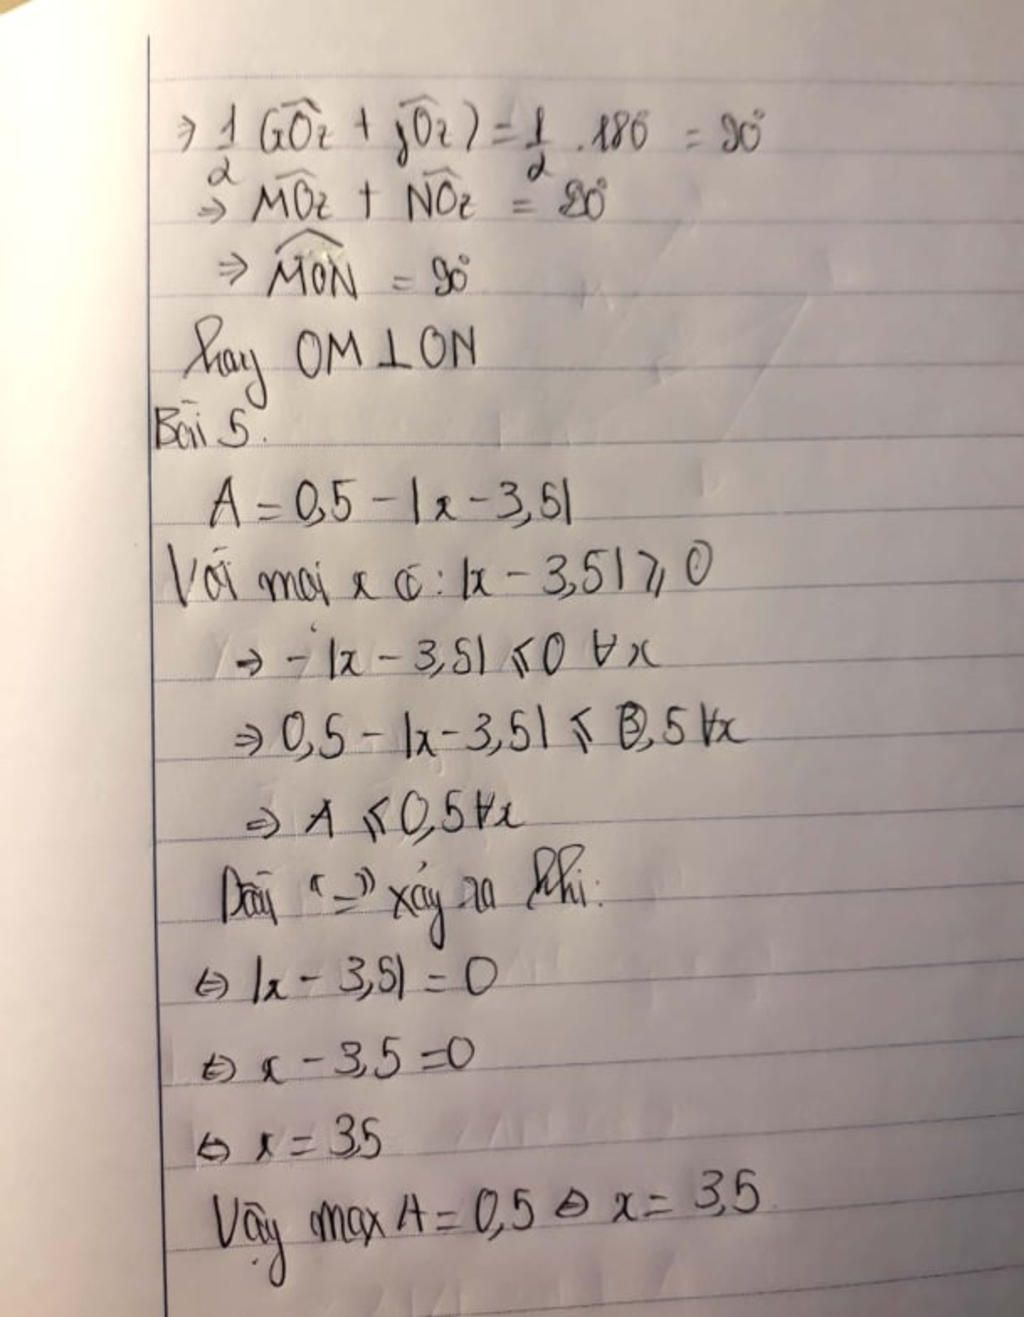 ⇒ 1/2 (xÔz + yÔz) = 1/2 . 180 = 90°
⇒ MÔz + NÔz = 90°
⇒ MÔN = 90°
hay OM ⊥ ON
Bài 5.
A = 0,5 - |x - 3,5|
Với mọi x có: |x - 3,5| ⩾ 0
⇒ - |x - 3,5| ⩽ 0 ∀x
⇒ 0,5 - |x - 3,5| ⩽ 0,5 ∀x
⇒ A ⩽ 0,5 ∀x
Dấu "=" xảy ra khi:
⇔ |x - 3,5| = 0
⇔ x - 3,5 = 0
⇔ x = 3,5
Vậy max A = 0,5 ⇔ x = 3,5.